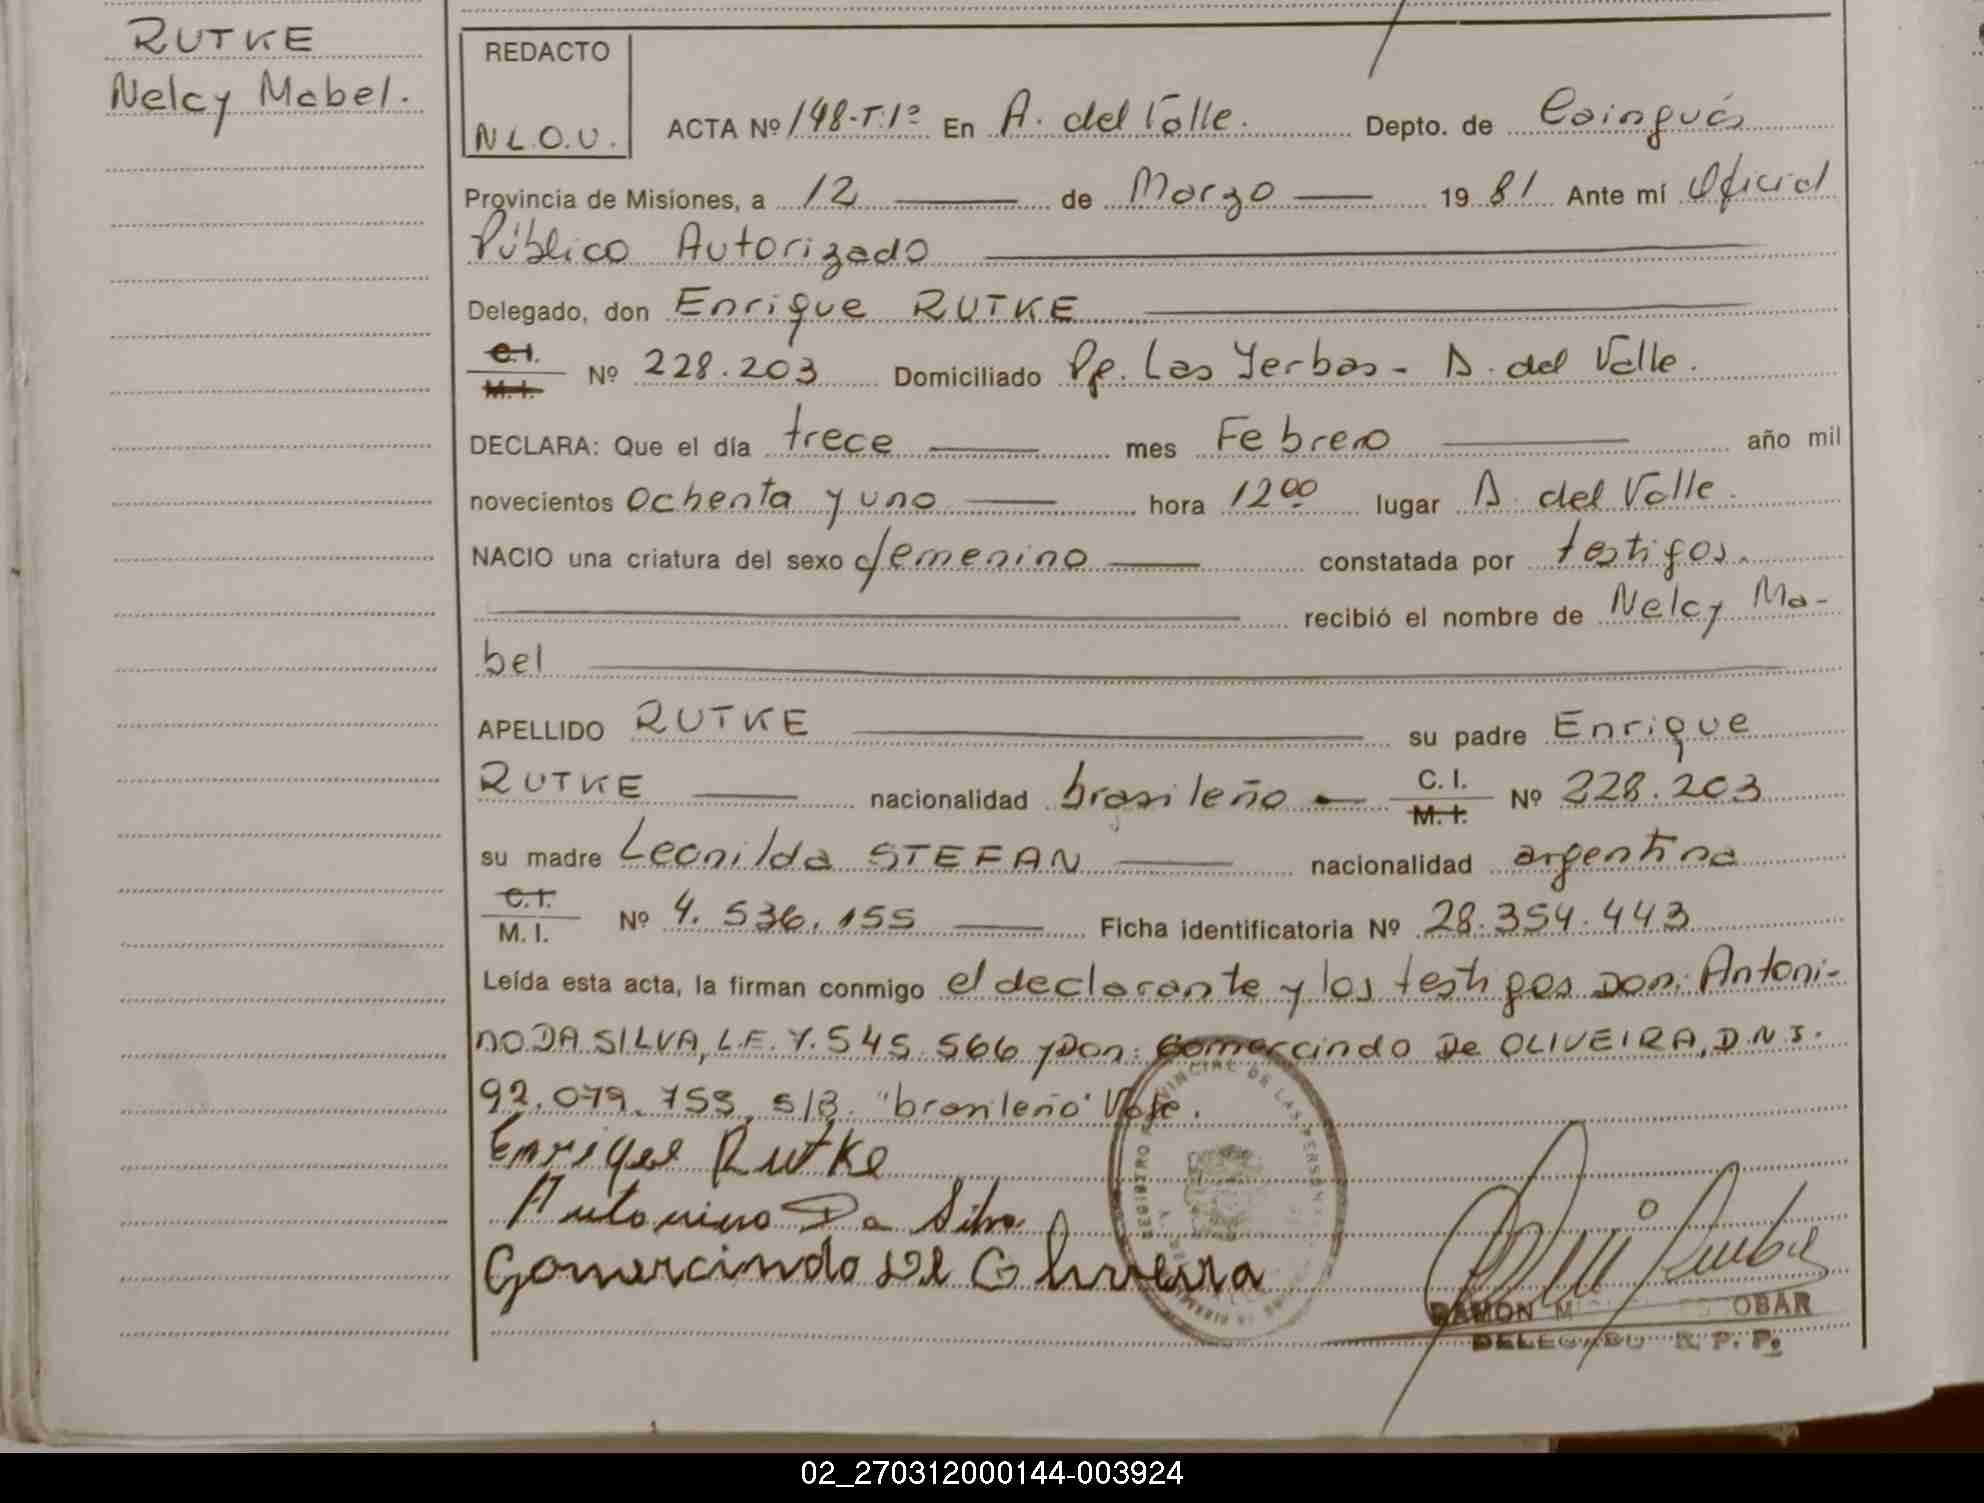 RUTKE
Nelcy Mabel.
REDACTO
N L.O.U.
ACTA Nº 148-T.1º En A. del Valle. Depto. de Cainguás
Provincia de Misiones, a 12 de Marzo 1981 Ante mí Oficial
Público Autorizado
Delegado, don Enrique RUTKE
C.I. M.I. Nº 228.203 Domiciliado Pje. Las Yerbas - A. del Valle.
DECLARA: Que el día trece mes Febrero año mil
novecientos ochenta y uno hora 12 00 lugar A. del Valle.
NACIO una criatura del sexo femenino constatada por testigos.
recibió el nombre de Nelcy Ma-
bel
APELLIDO RUTKE su padre Enrique
RUTKE nacionalidad brasileño C. I. M. I. Nº 228.203
su madre Leonilda STEFAN nacionalidad argentina
C.I. M. I. Nº 4.536.155 Ficha identificatoria Nº 28.354.443
Leída esta acta, la firman conmigo el declarante y los testigos Don: Antoni-
no DA SILVA, L.E. 7.545.566 y Don: Gomercindo De OLIVEIRA, D.N.I.
92.079.753, s/B. "brasileño" Vale.
Enriqel Rutke
Antonino Da Silva
Gomercindo de Oliveira
RAMON OBAR
DELEGADO R. P. P.
02_270312000144-003924